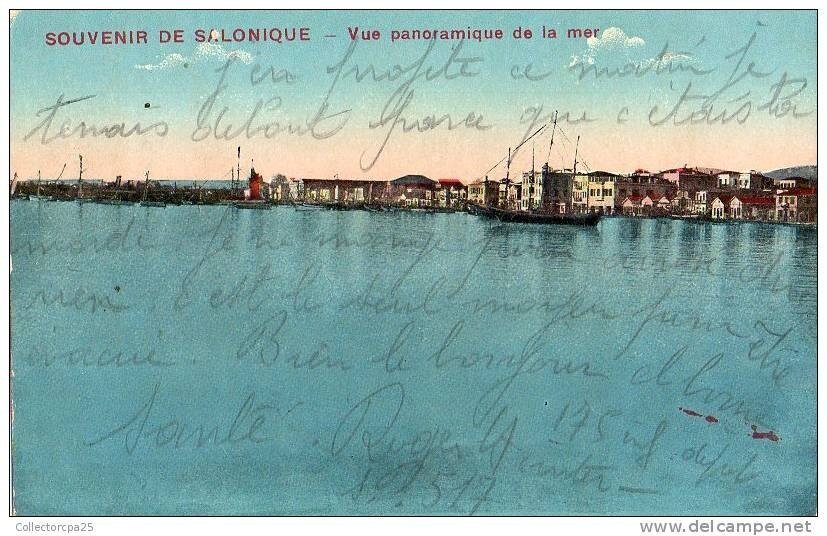 SOUVENIR DE SALONIQUE – Vue panoramique de la mer
j'en profite ce matin je
tenais debout parce que c'était
mardi je ne mange
rien, c'est le seul moyen pour être
évacué. Bien le bonjour et bonne
santé. Roger 175 inf dépôt
S.P. 517
Collectorcpa25
delcampe.net